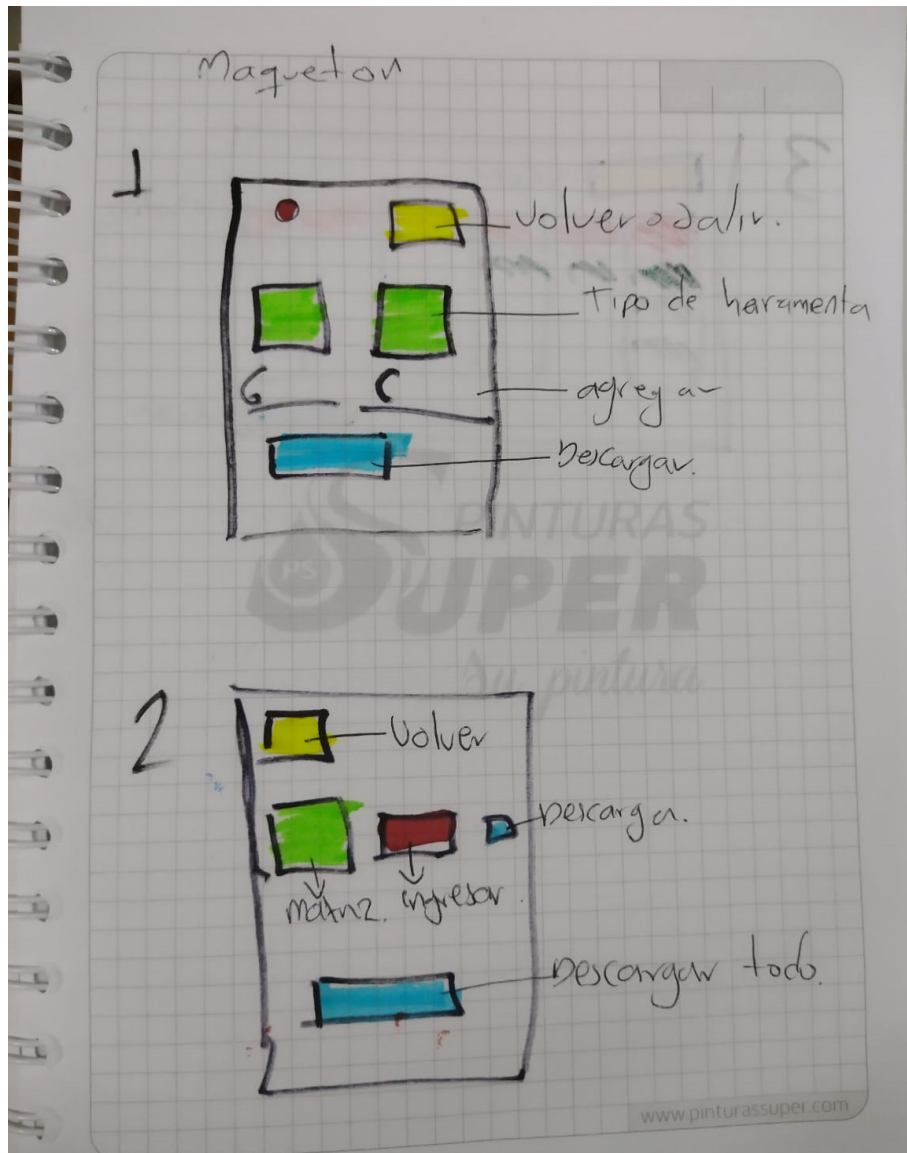 Maqueton
1
Volver o salir.
Tipo de haramenta
G C
agregar
Descargar.
PINTURAS
SUPER
PS
Su pintura
2
Volver
Descarga.
matriz. ingresar.
Descargar todo.
www.pinturassuper.com